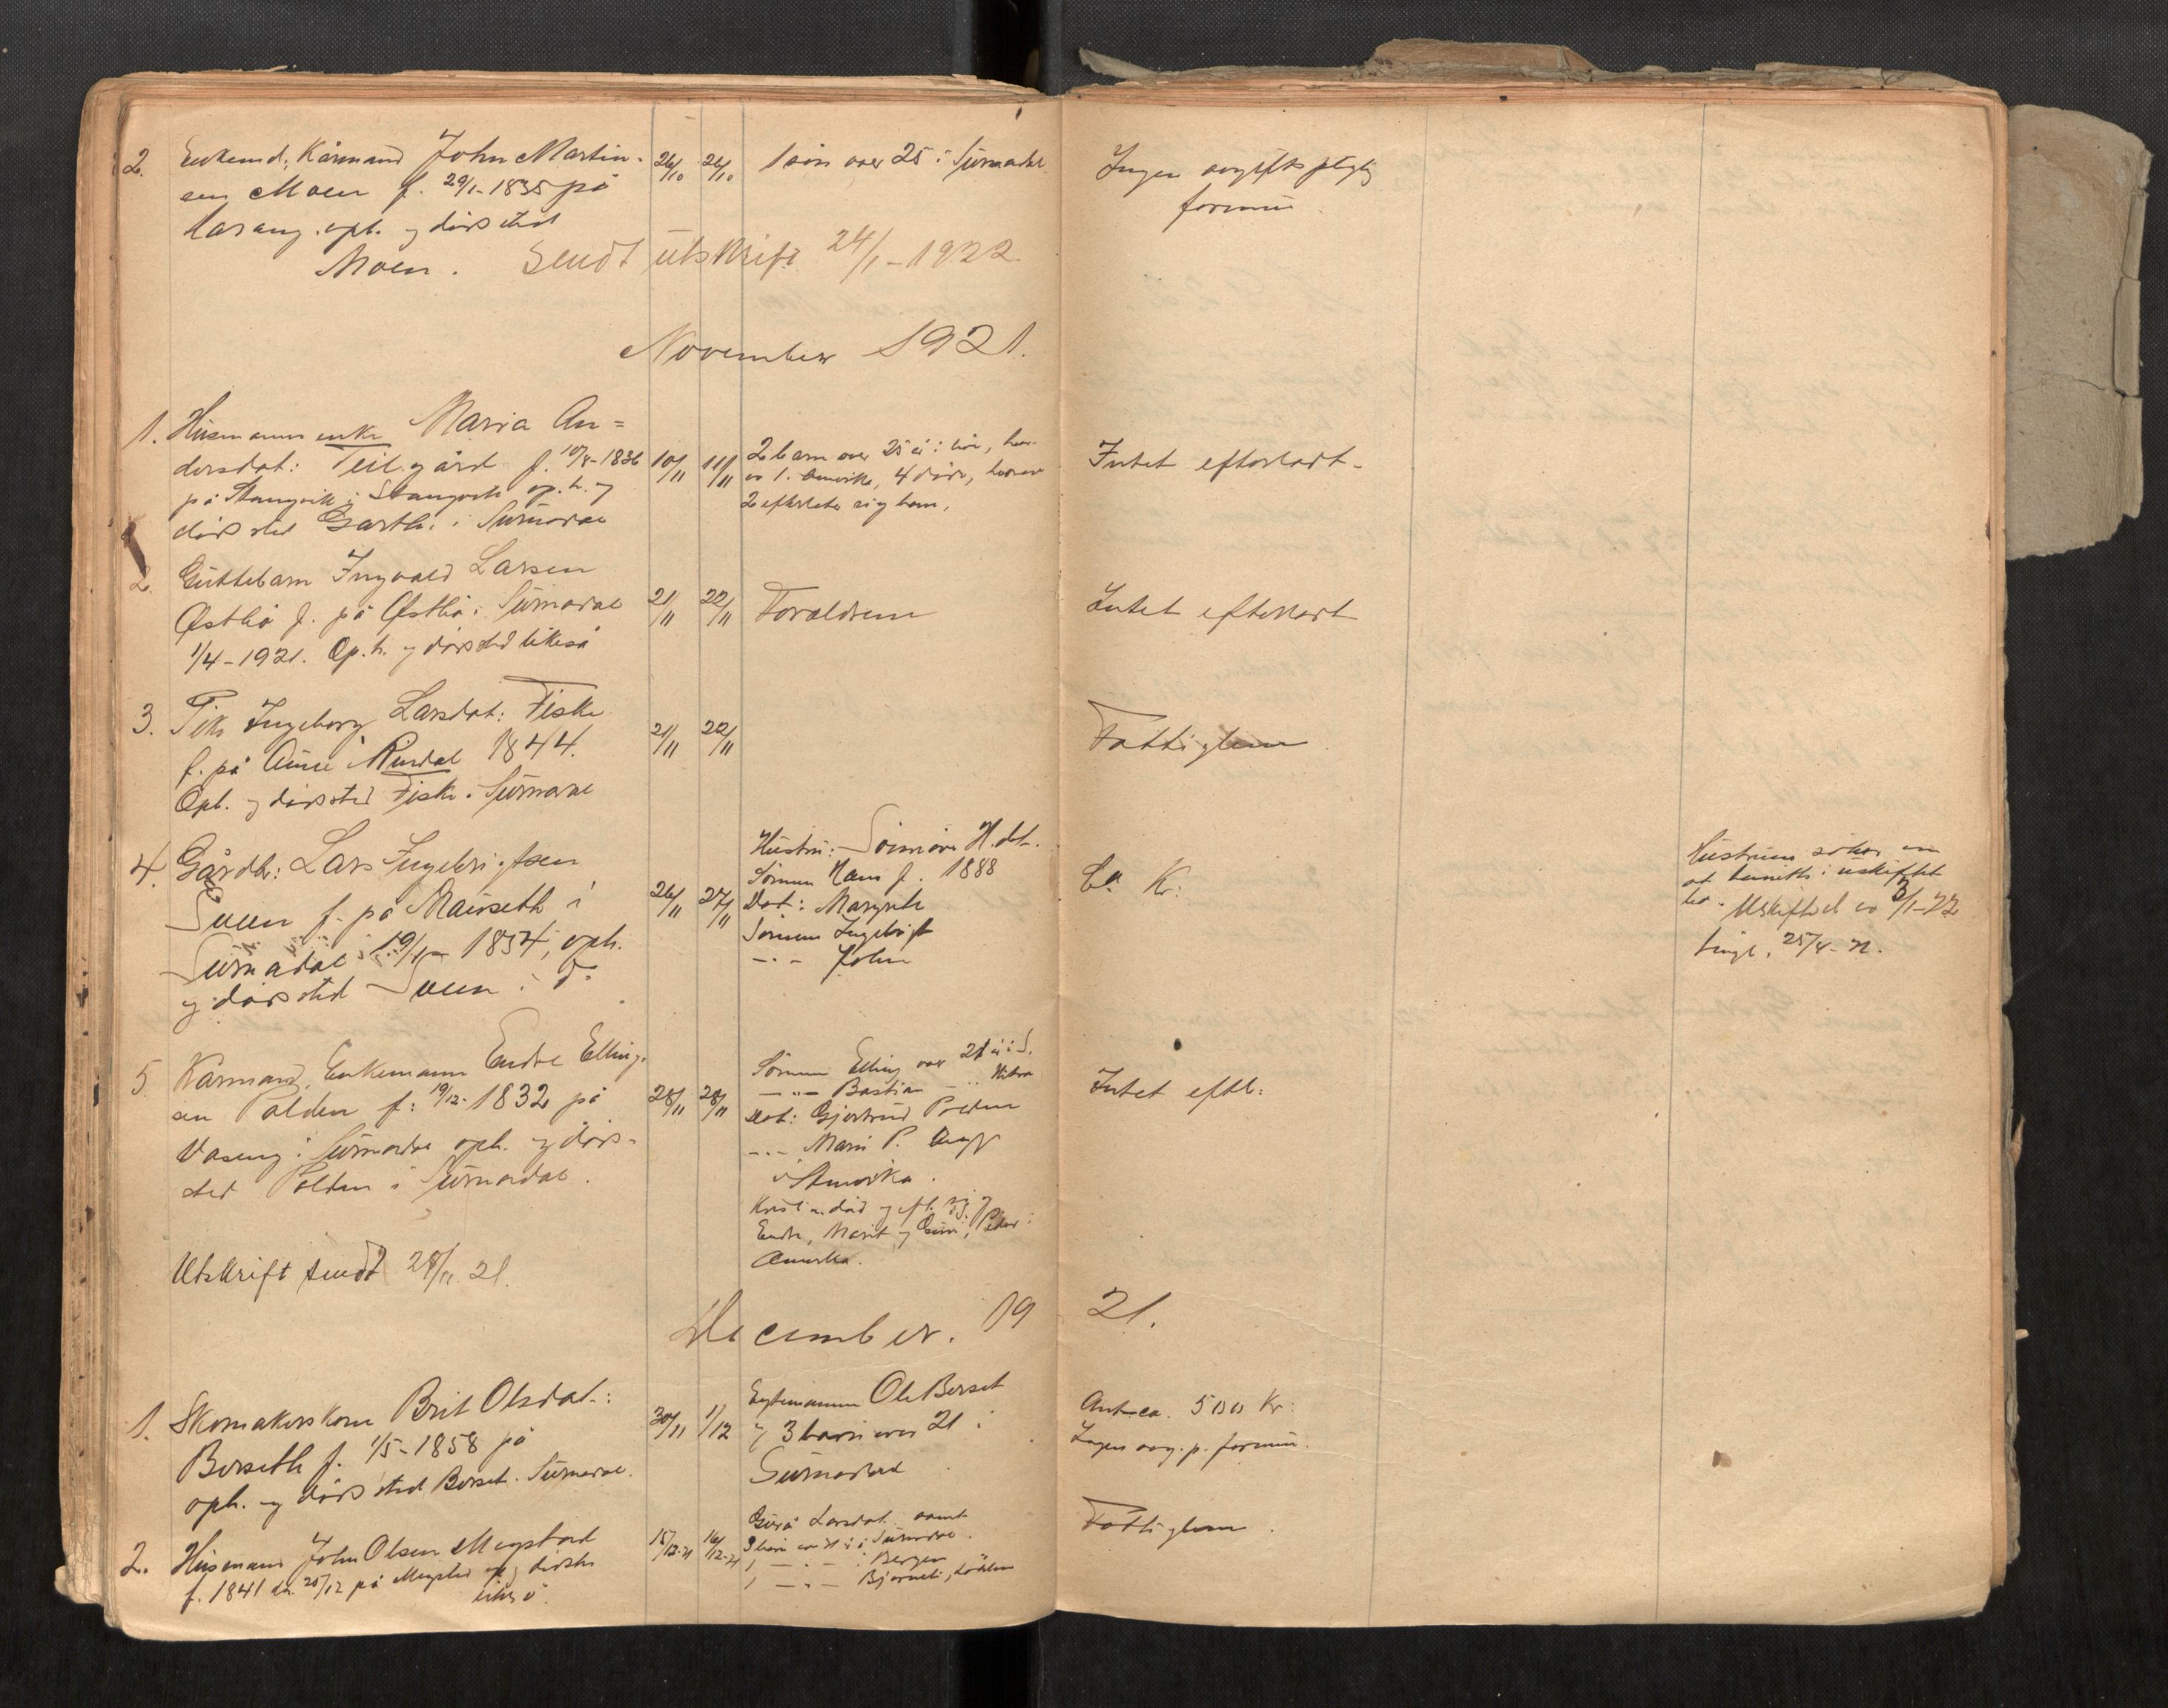 2. Enkemd, Kårmand John Martin-
sen Moen f. 29/1-1835 på
Harang. oph. og dødssted
Moen.
26/10 26/10
1 søn over 25 i Surnadal
Ingen avgiftspligtig
formue.
Sendt utskrift 24/1-1922.
November 1921.
1. Husmanns enke Maria An=
dersdat: Teilgård f. 10/8-1836
på Stangvik i Stangvik op.h. og
dødssted Garth: i Surnadal
10/11 11/11
2 barn over 25 år i live, hvor-
av 1. Amerika, 4 døde, hvorav
2 efterlater sig barn,
Intet efterladt-
2. Guttebarn Ingvald Larsen
Østbø f. på Østbø i Surnadal
1/4-1921. Op.h. og dødssted likeså
21/11 22/11
Forældrene
Intet efterladt
3. Pike Ingeborg Larsdat: Fiske
f. på Aune i Rindal 1844.
Oph. og dødssted Fiske i Surnadal
21/11 22/11
Fattiglem
4. Gårdbr: Lars Ingebrigtsen
Sveen f. på i
Surnadal 19/ 1834, oph.
og dødssted Sveen i do
26/11 27/11
Hustru: H.dt.
Sønnen Hans f. 1888
Dat: Margrete
Sønnen Ingebrigt
-"- John
Ca Kr:
Hustruen søker om
at hensitte i uskiftet
bo. Uskiftebev. 3/1-22
tingl. 25/4-22.
5. Kårmand, Enkemann Endre Elling-
sen Polden f: 19/12-1832 på
Vaseng i Surnadal oph. og døds-
sted Polden i Surnadal.
28/11 28/11
Sønnen Elling over 21 år i S.
-"- Bastian -"- Hitra
Dat: Gjertrud Polden
-"- Marit P.
i Amerika.
død og eft. sig
Endre, Marit og i
Amerika.
Intet eftl:
Utskrift sendt 28/11 21.
December. 1921.
1. Skomakerskone Brit Olsdat.:
Borseth f. 1/5-1858 på
oph. og dødssted Borset. Surnadal.
30/11 1/12
Egtemannen Ole Borset
og 3 barn over 21 i
Surnadal
Ant. ca. 500 Kr:
Ingen avg.p. formue.
2. Husmann John Olsen Megstad
f. 1841 den 20/12 på Megstad op og dødsste
likeså.
15/12-21 16/12-21
Gurå Larsdat. samt
3 barn over 21 i Surnadal.
1 -"- i Bergen
1 -"- Bjørnebi,
Fattiglem.